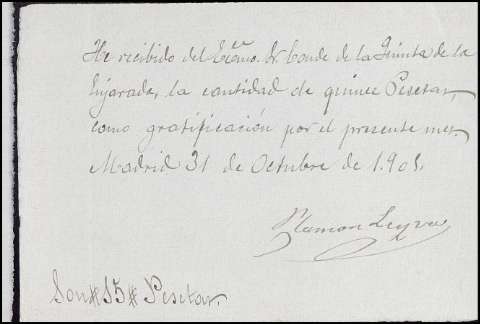 He recibido del Excmo. Sr Conde de la Quinta de la
Enjarada, la cantidad de quince Pesetas,
como gratificación por el presente mes.
Madrid 31 de Octubre de 1.905.
Ramon Leyva
Son # 15 # Pesetas.